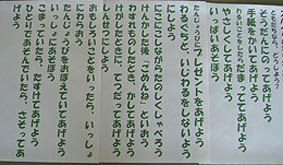 ともだちなら、どうしよう?
そうだんにのってあげよう
手紙をかいてあげよう
やさしくしてあげよう
いっぱいあそぼう
たんじょう日にプレゼントをあげよう
わる口ぐちと、いじわるをしないようにしよう
にこにこしながらたのしくしゃべろう
けんかした時、「ごめんね」といおう
わすれものしたとき、かしてあげよう
けがしたときに、てつだってあげよう
しんせつにしよう
おもしろいことをいったら、いっしょにわらおう
たんじょうびをおぼえていてあげよう
いっしょにあそぼう
こまっていたら、たすけてあげよう
ひとりであそんでいたら、さそってあ